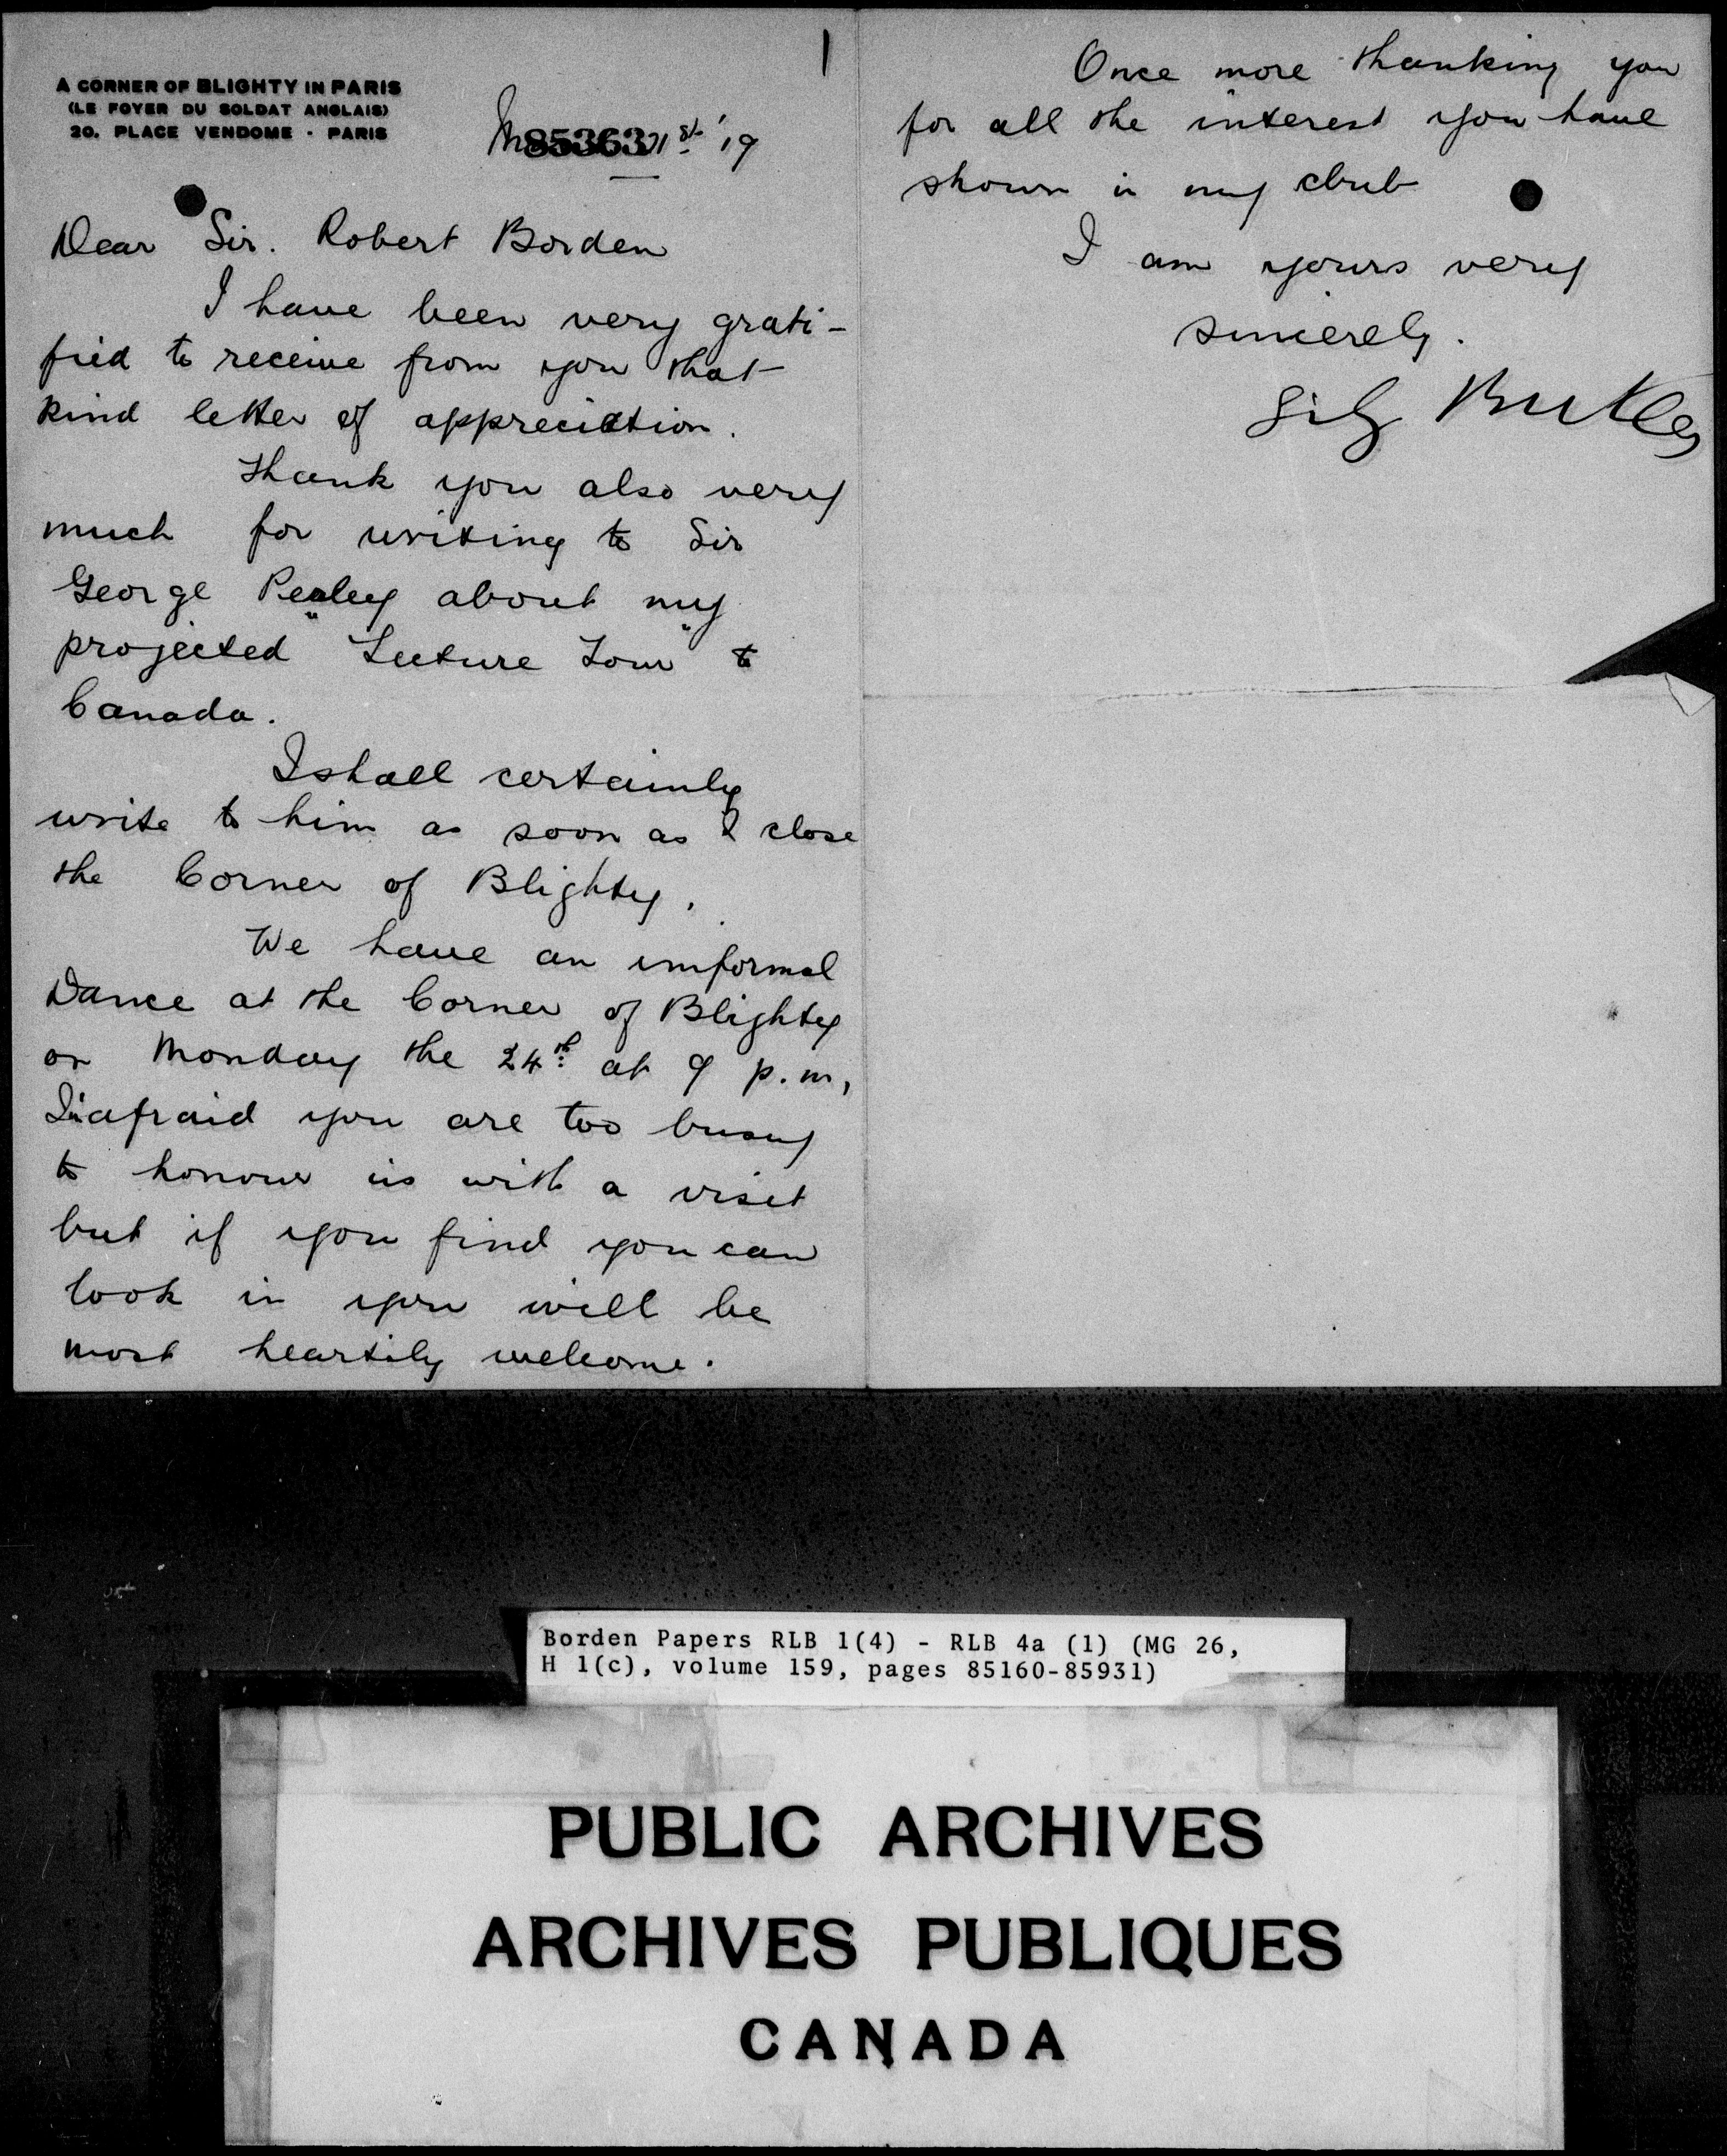 A CORNER OF BLIGHTY IN PARIS
(LE FOYER DU SOLDAT ANGLAIS)
20, PLACE VENDOME · PARIS
85363 st '19
Dear Sir. Robert Borden
I have been very grati-
fied to receive from you that
kind letter of appreciation.
Thank you also very
much for writing to Sir
George Perley about my
projected "Lecture Tour" to
Canada.
I shall certainly
write to him as soon as I close
the Corner of Blighty.
We have an informal
Dance at the Corner of Blighty
on Monday the 24th at 9 p.m,
afraid you are too busy
to honour us with a visit
but if you find you can
look in you will be
most heartily welcome.
1
Once more thanking you
for all the interest you have
shown in my club
I am yours very
sincerely.
Butler
Borden Papers RLB 1(4) - RLB 4a (1) (MG 26,
H 1(c), volume 159, pages 85160-85931)
PUBLIC ARCHIVES
ARCHIVES PUBLIQUES
CANADA